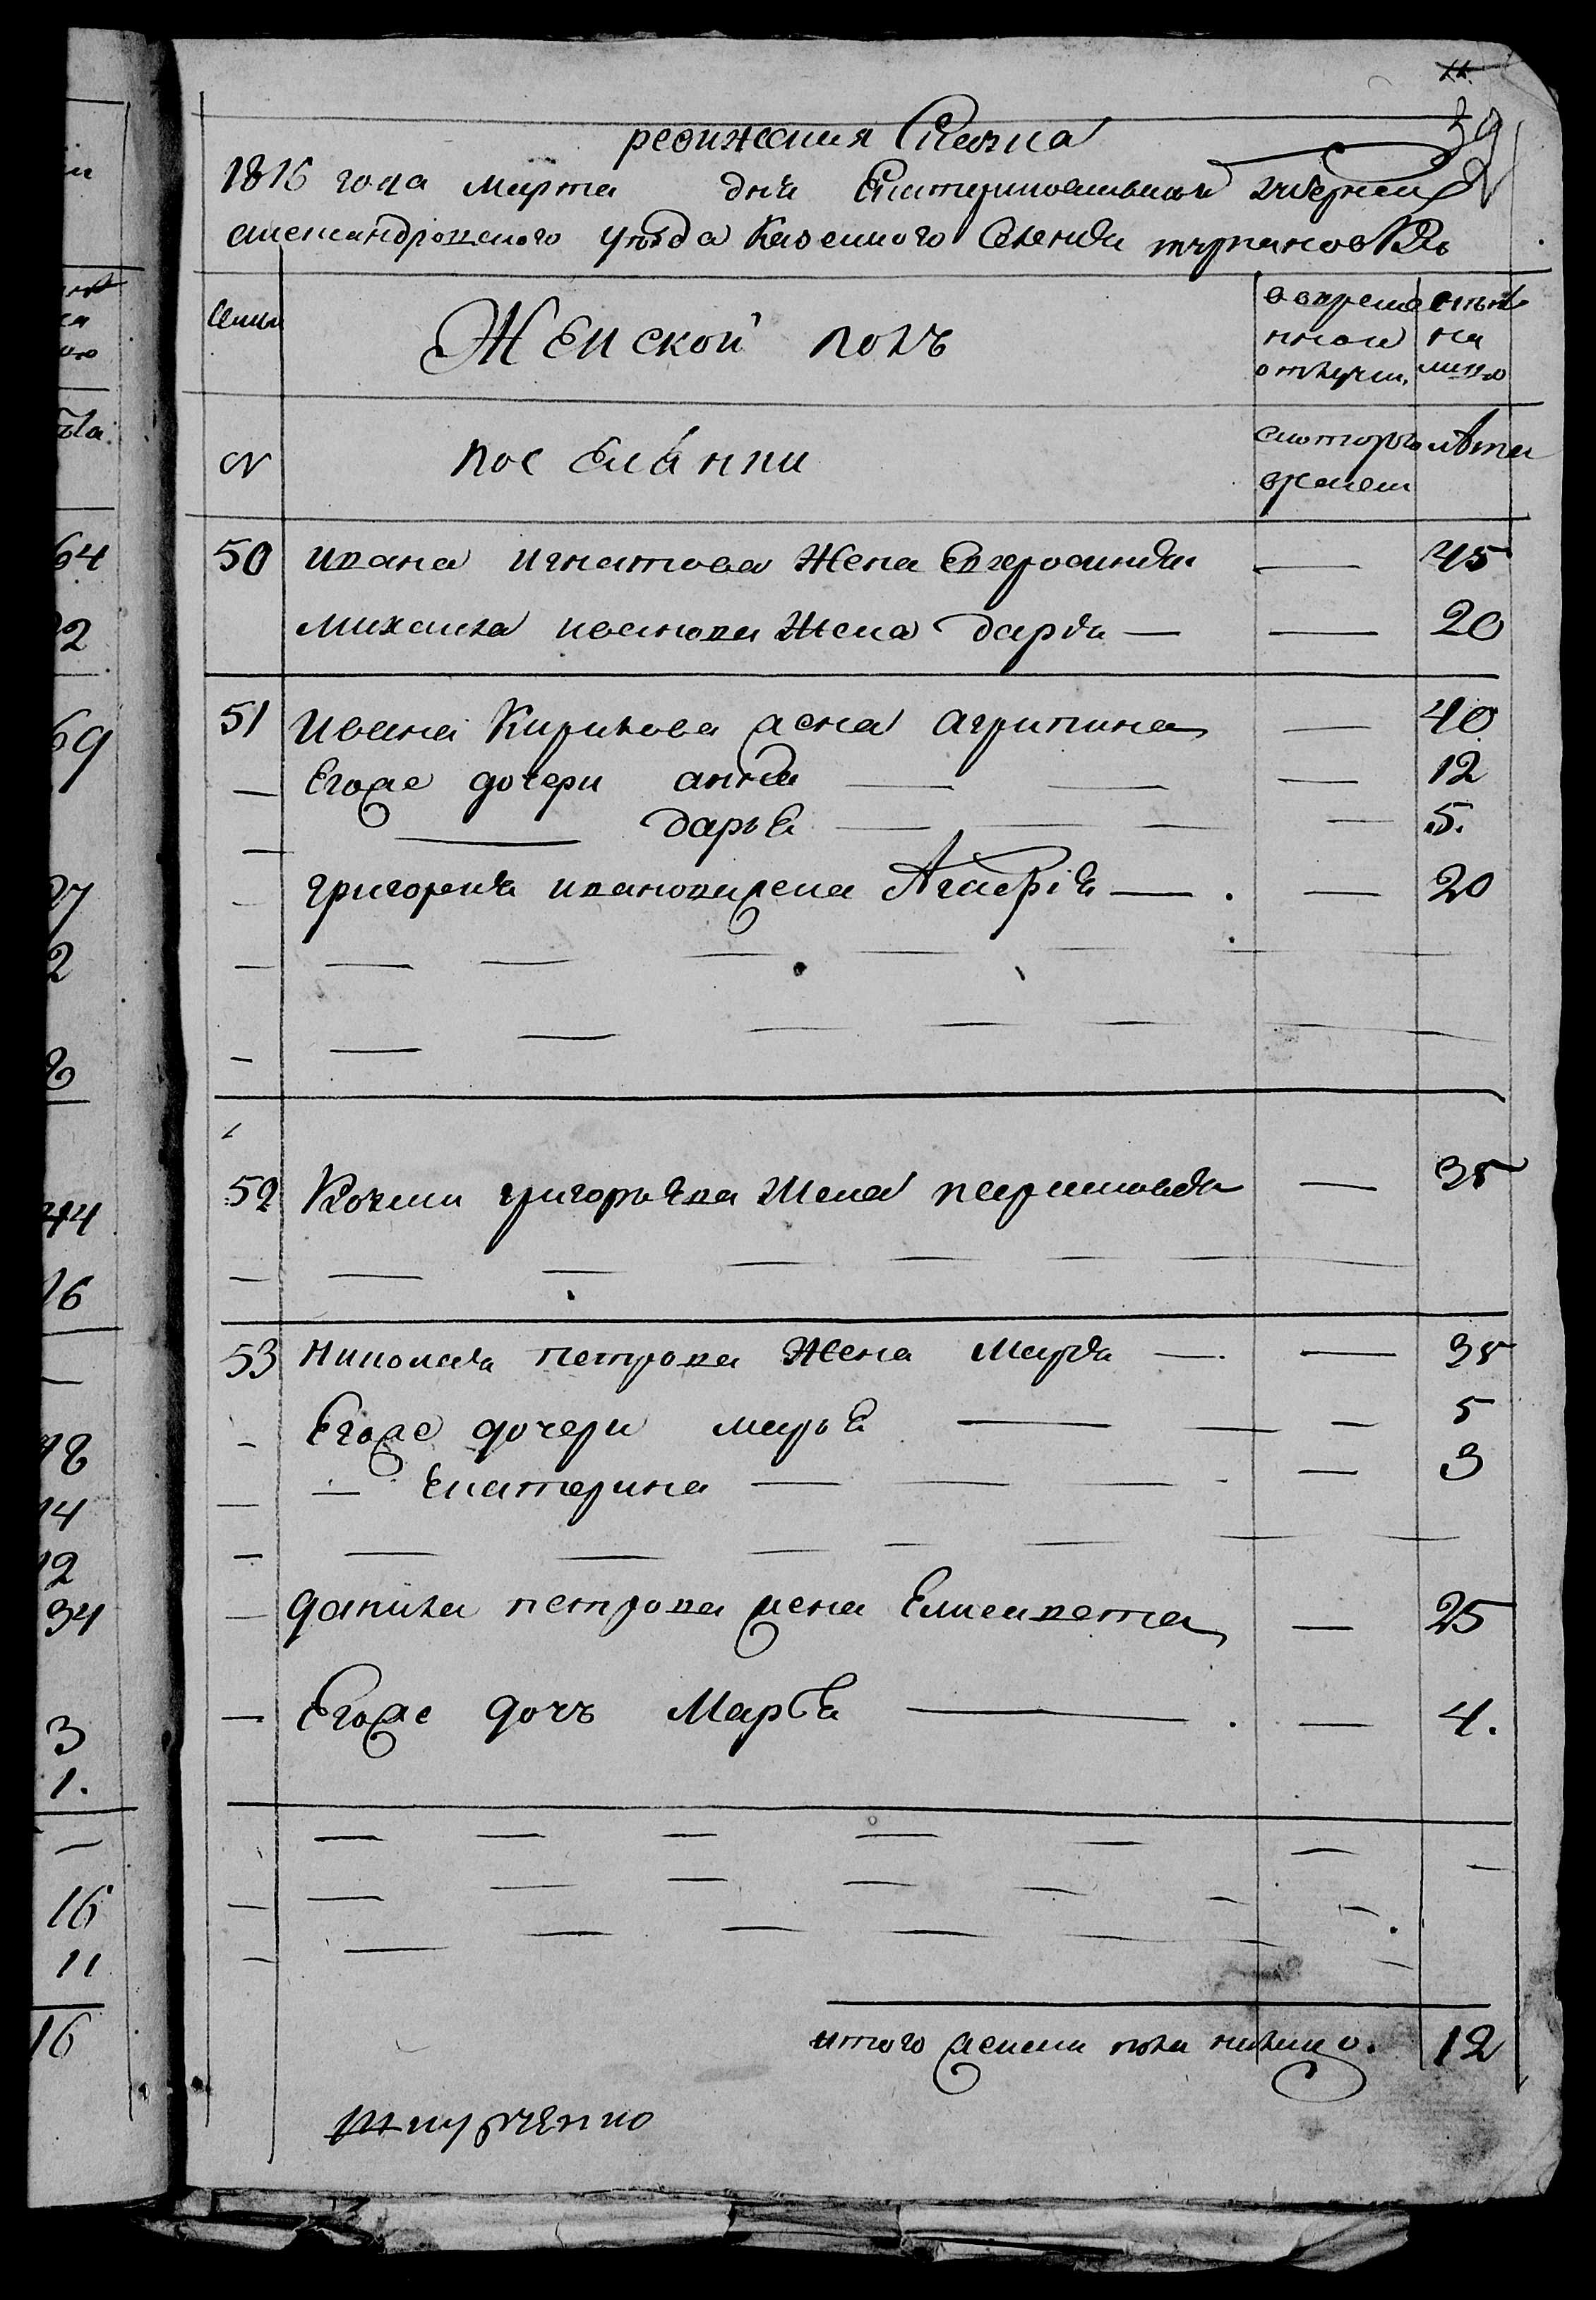 11.
39
ревижеския Сказка
1816 года марта дня Екатеринославской губернии
александровского уезда Казенного Селения турпановки
Семьи
Женской полъ
во время
нной
отлучки
ныне
на
лицо
N
поселянки
с которого
времени
лета
50 ивана игнатова Жена Евфросиния — 45
михаила иванова Жена дария — — 20
51 ивана Кирилова жена агрипина — 40
— Егоже дочери анна — — — 12
— дарья — — — — 5.
григория иванова жена Агафія — — 20
52 григорьева Жена — 35
53 николая петрова Жена мария — — 35
Егоже дочери марья — — — 5
— Екатерина — — — — 3
— данила петрова жена Елисавета — 25
— Егоже дочъ Марья — — 4.
итого женска пола налицо. 12
64
22
69
27
2
44
26
18
14
12
34
3
1.
16
11
16